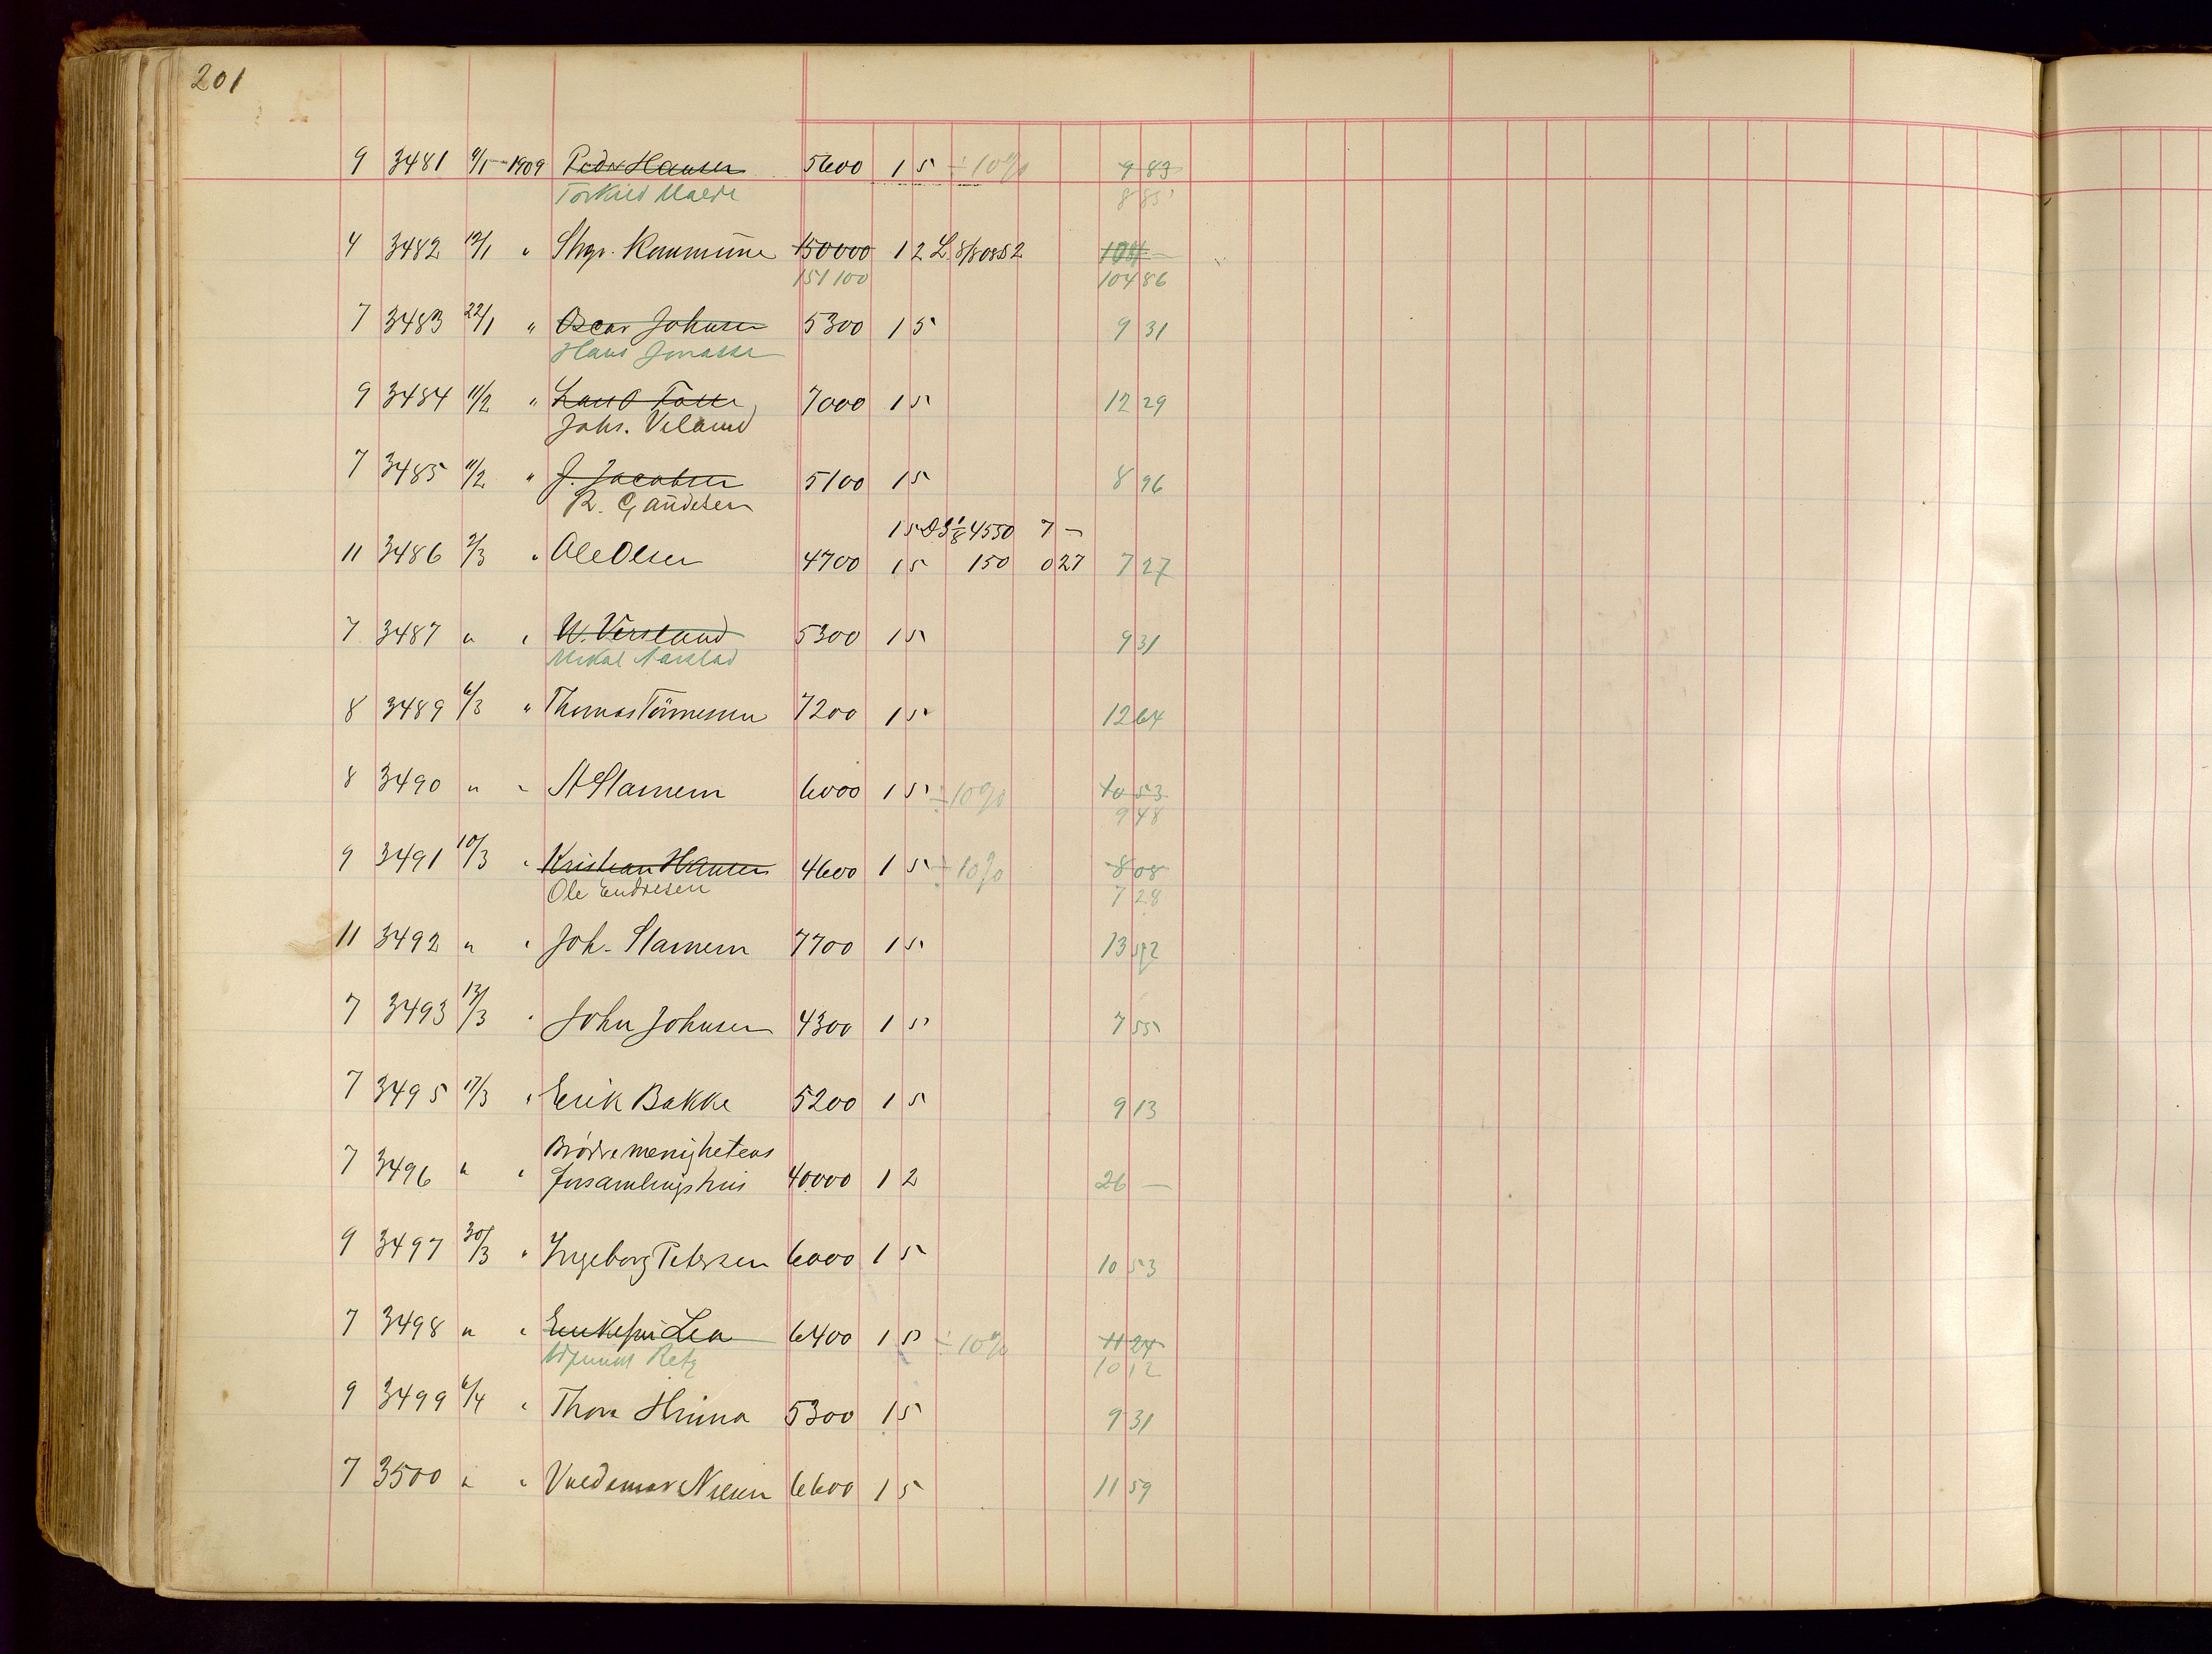 201
9 3481 9/1 1909 Peder Hansen 5600 1 5 ÷10% 9 83
Torkild Malde 8 85
4 3482 12/1 " Stvgr. Kommune 150000 1 2 104 —
151100 104 86
7 3483 22/1 " Oscar Johnsen 5300 1 5 9 31
Hans Jonassen
9 3484 11/2 " 7000 1 5 12 29
Johs. Veland
7 3485 11/2 " J. Jacobsen 5100 1 5 8 96
R. Gaudesen
1 5 4550 7 —
11 3486 2/3 " Ole Olsen 4700 1 5 150 0 27 7 27
7 3487 " " W. Versland 5300 1 5 9 31
Mikal
8 3489 6/3 " Thomas Tönnesen 7200 1 5 12 64
8 3490 " " A Stamnem 6000 1 5 ÷10% 10 53
9 48
9 3491 10/3 " Kristian Hansen 4600 1 5 ÷10% 8 08
Ole Endresen 7 28
11 3492 " " Joh. Stamnem 7700 1 5 13 52
7 3493 13/3 " John Johnsen 4300 1 5 7 55
7 3495 17/3 " Erik Bakke 5200 1 5 9 13
Brödremenighetens
7 3496 " " Forsamlingshus 40000 1 2 26 —
9 3497 30/3 " Ingeborg Petersen 6000 1 5 10 53
7 3498 " " Enkefru Lea 6400 1 5 ÷10% 11 24
Adjunkt Retz 10 12
9 3499 6/4 " Thore Hinna 5300 1 5 9 31
7 3500 " " Valdemar Nilsen 6600 1 5 11 59